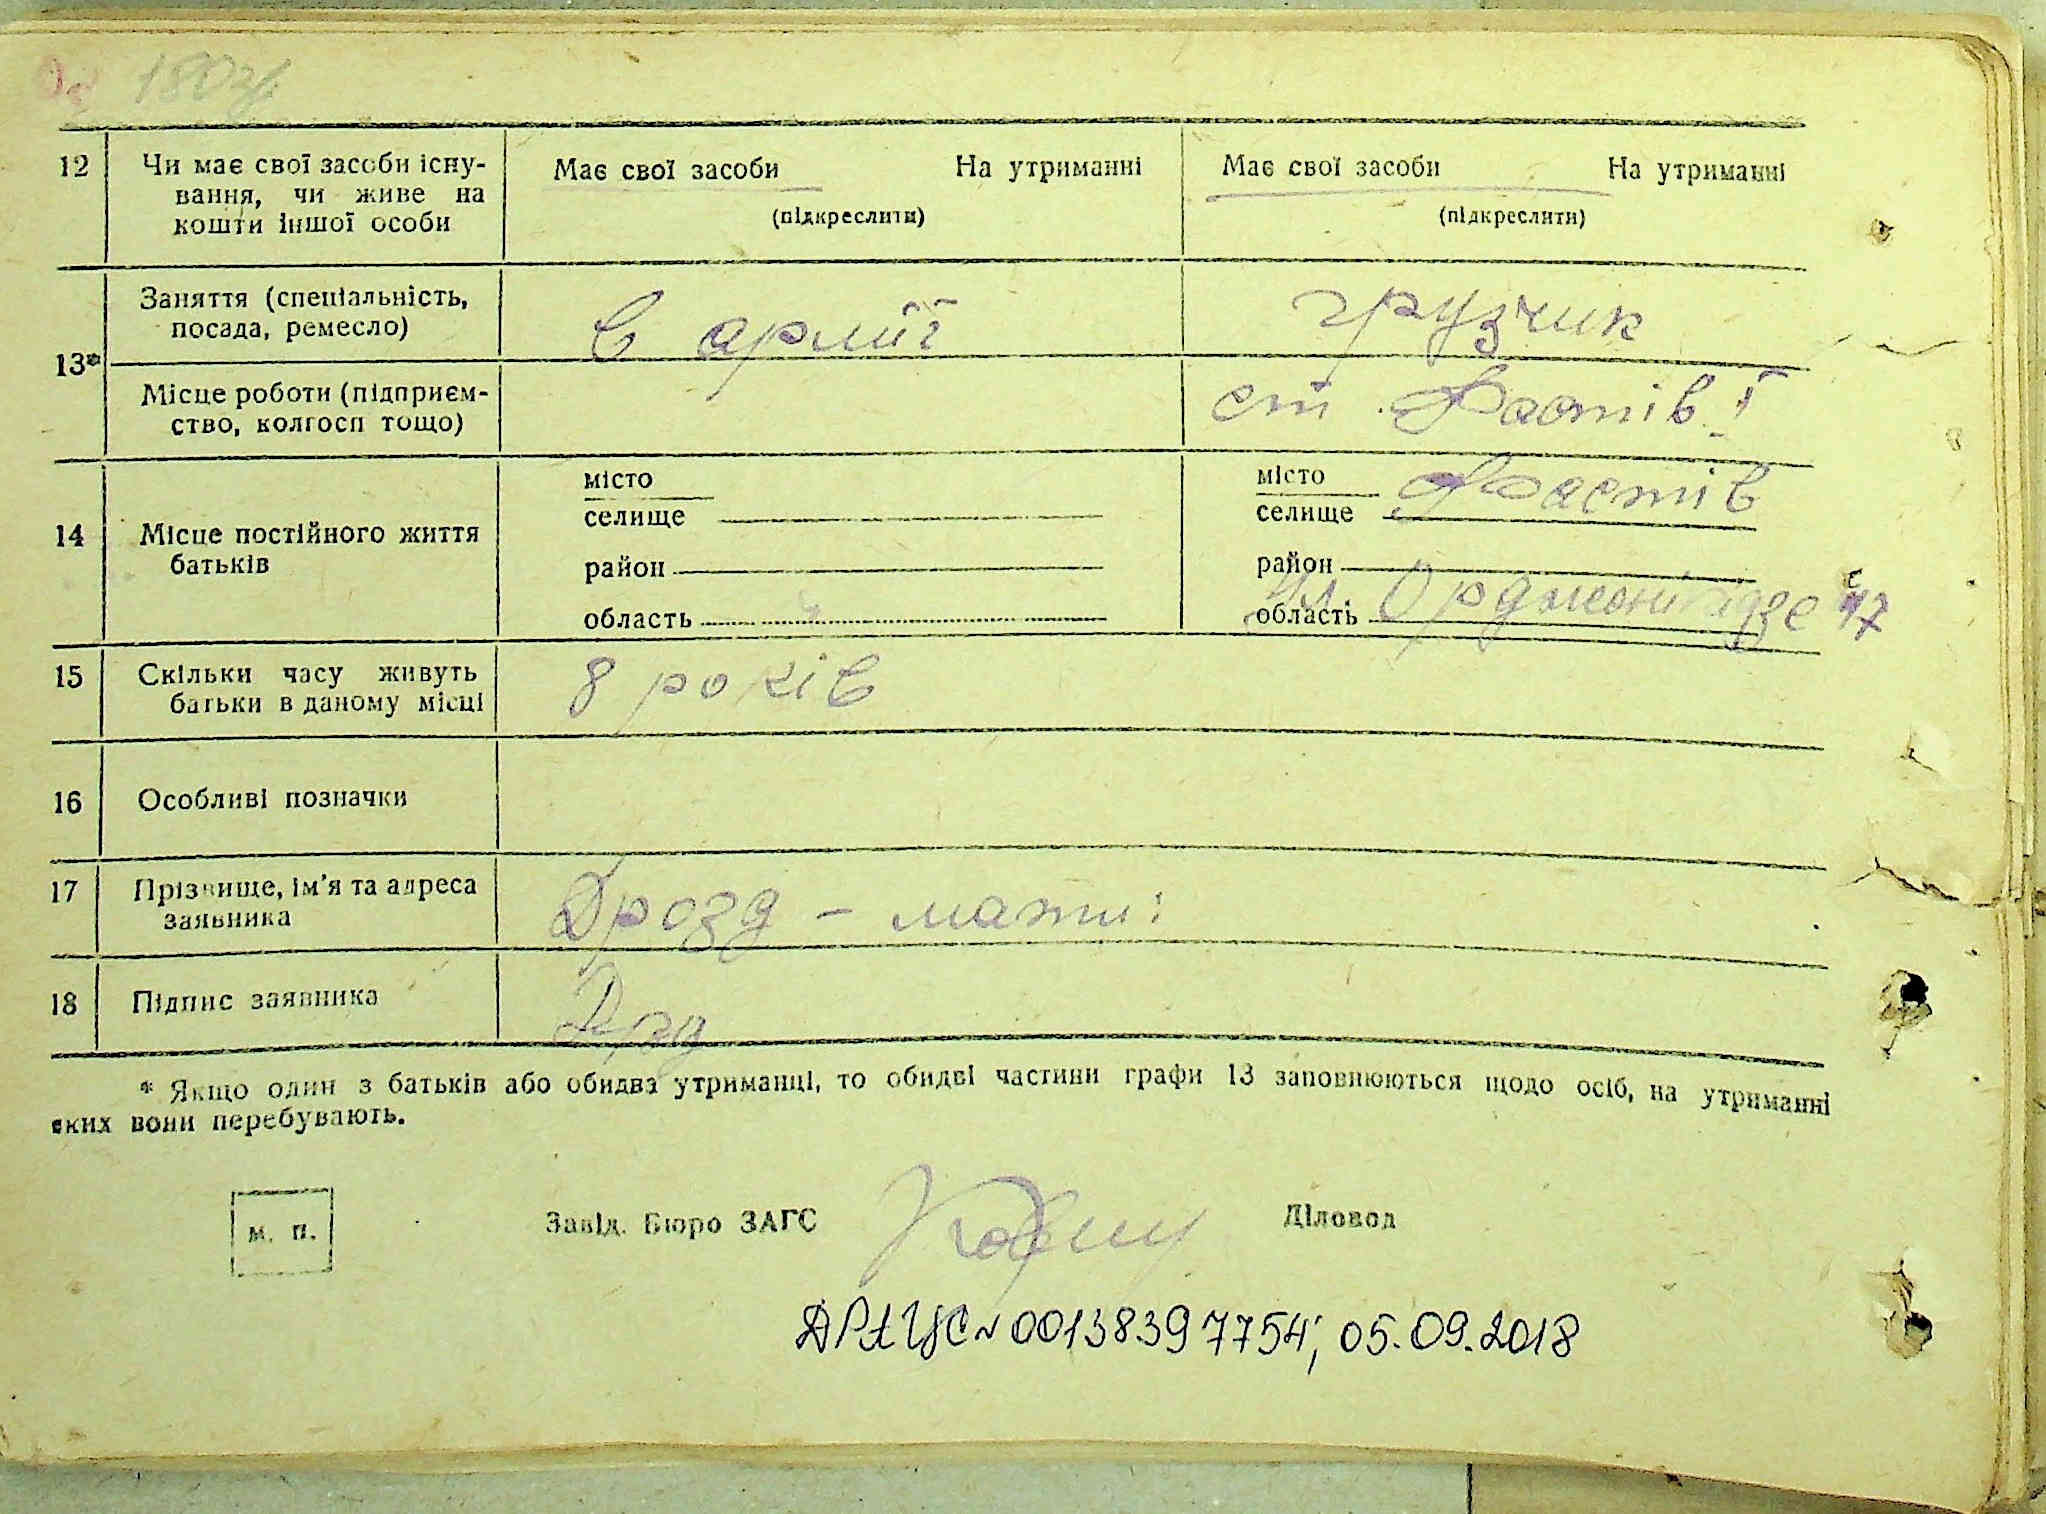 180 зв
12 Чи має свої засоби існу-
вання, чи живе на
кошти іншої особи
Має свої засоби На утриманні
(підкреслити)
Має свої засоби На утриманні
(підкреслити)
13*
Заняття (спеціальність,
посада, ремесло)
в армії
грузчик
Місце роботи (підприєм-
ство, колгосп тощо)
ст. Фастів I
14 Місце постійного життя
батьків
місто
селище
район
область
місто Фастів
селище
район
ул. Орджонікідзе 47
область
15 Скільки часу живуть
батьки в даному місці
8 років
16 Особливі позначки
17 Прізвище, ім'я та адреса
заявника
Дрозд – мати:
18 Підпис заявника
* Якщо один з батьків або обидва утриманці, то обидві частини графи 13 заповнюються щодо осіб, на утриманні
яких вони перебувають.
м. п.
Завід. Бюро ЗАГС Діловод
ДРАЦС ~ 00138397754; 05.09.2018